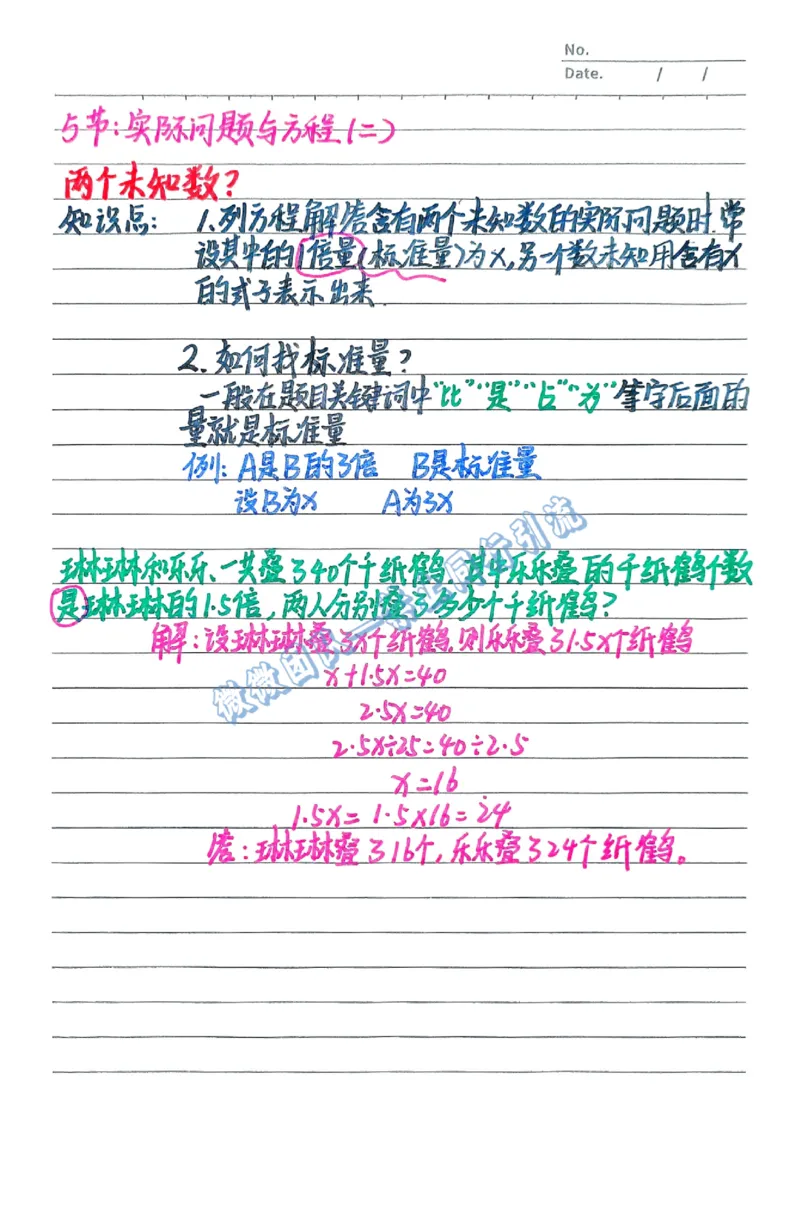 No.
Date. / /
5节:实际问题与方程(二)
两个未知数?
知识点: 1.列方程解答含有两个未知数的实际问题时.常
设其中的1倍量(标准量)为x,另一个数未知用含有x
的式子表示出来.
2.如何找标准量?
一般在题目关键词中“比”“是”“占”“为”等字后面的
量就是标准量
例:A是B的3倍 B是标准量
设B为x A为3x
琳琳和乐乐、一共叠了40个千纸鹤,其中乐乐叠的千纸鹤个数
是琳琳的1.5倍,两人分别叠了多少个千纸鹤?
解:设琳琳叠了x个纸鹤,则乐乐叠了1.5x个纸鹤
x+1.5x=40
2.5x=40
2.5x÷25=40÷2.5
x=16
1.5x=1.5×16=24
答:琳琳叠了16个,乐乐叠了24个纸鹤。